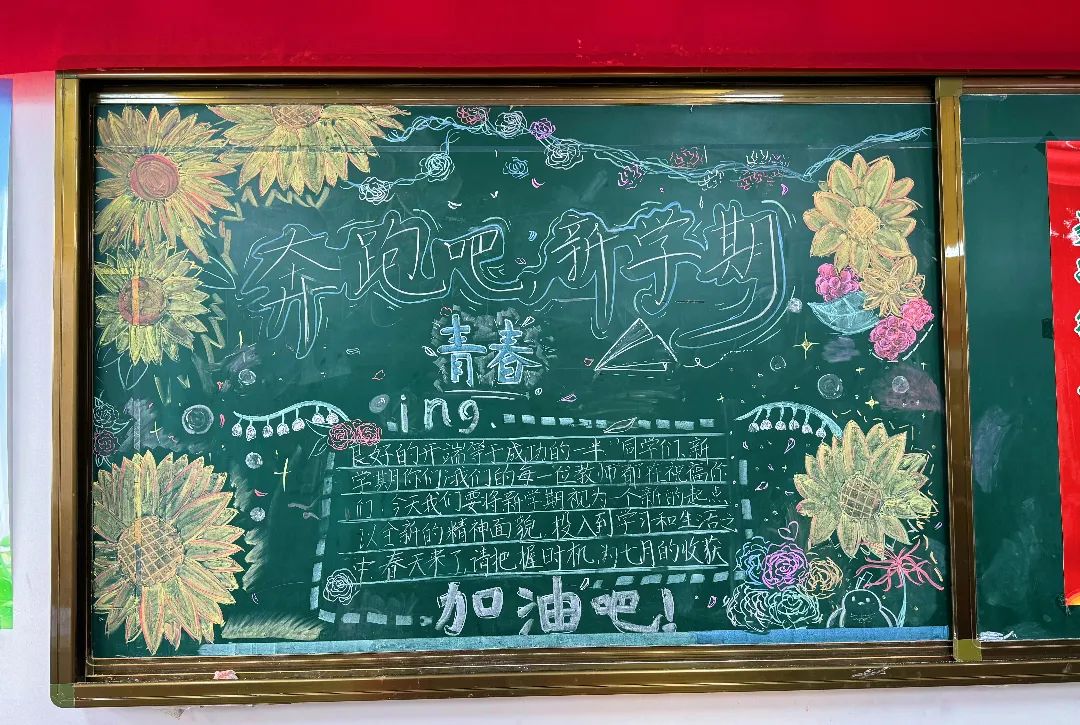 奔跑吧 新学期
青春
ing
良好的开端等于成功的一半 同学们,新
学期你们,我们的每一位教师都在祝福你
们. 今天我们要将新学期视为一个新的起点
以全新的精神面貌 投入到学习和生活之
中 春天来了,请把握时机, 七月的收获
加油吧!